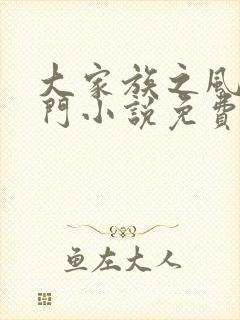 大家族之風
門小說免費
鱼左大人